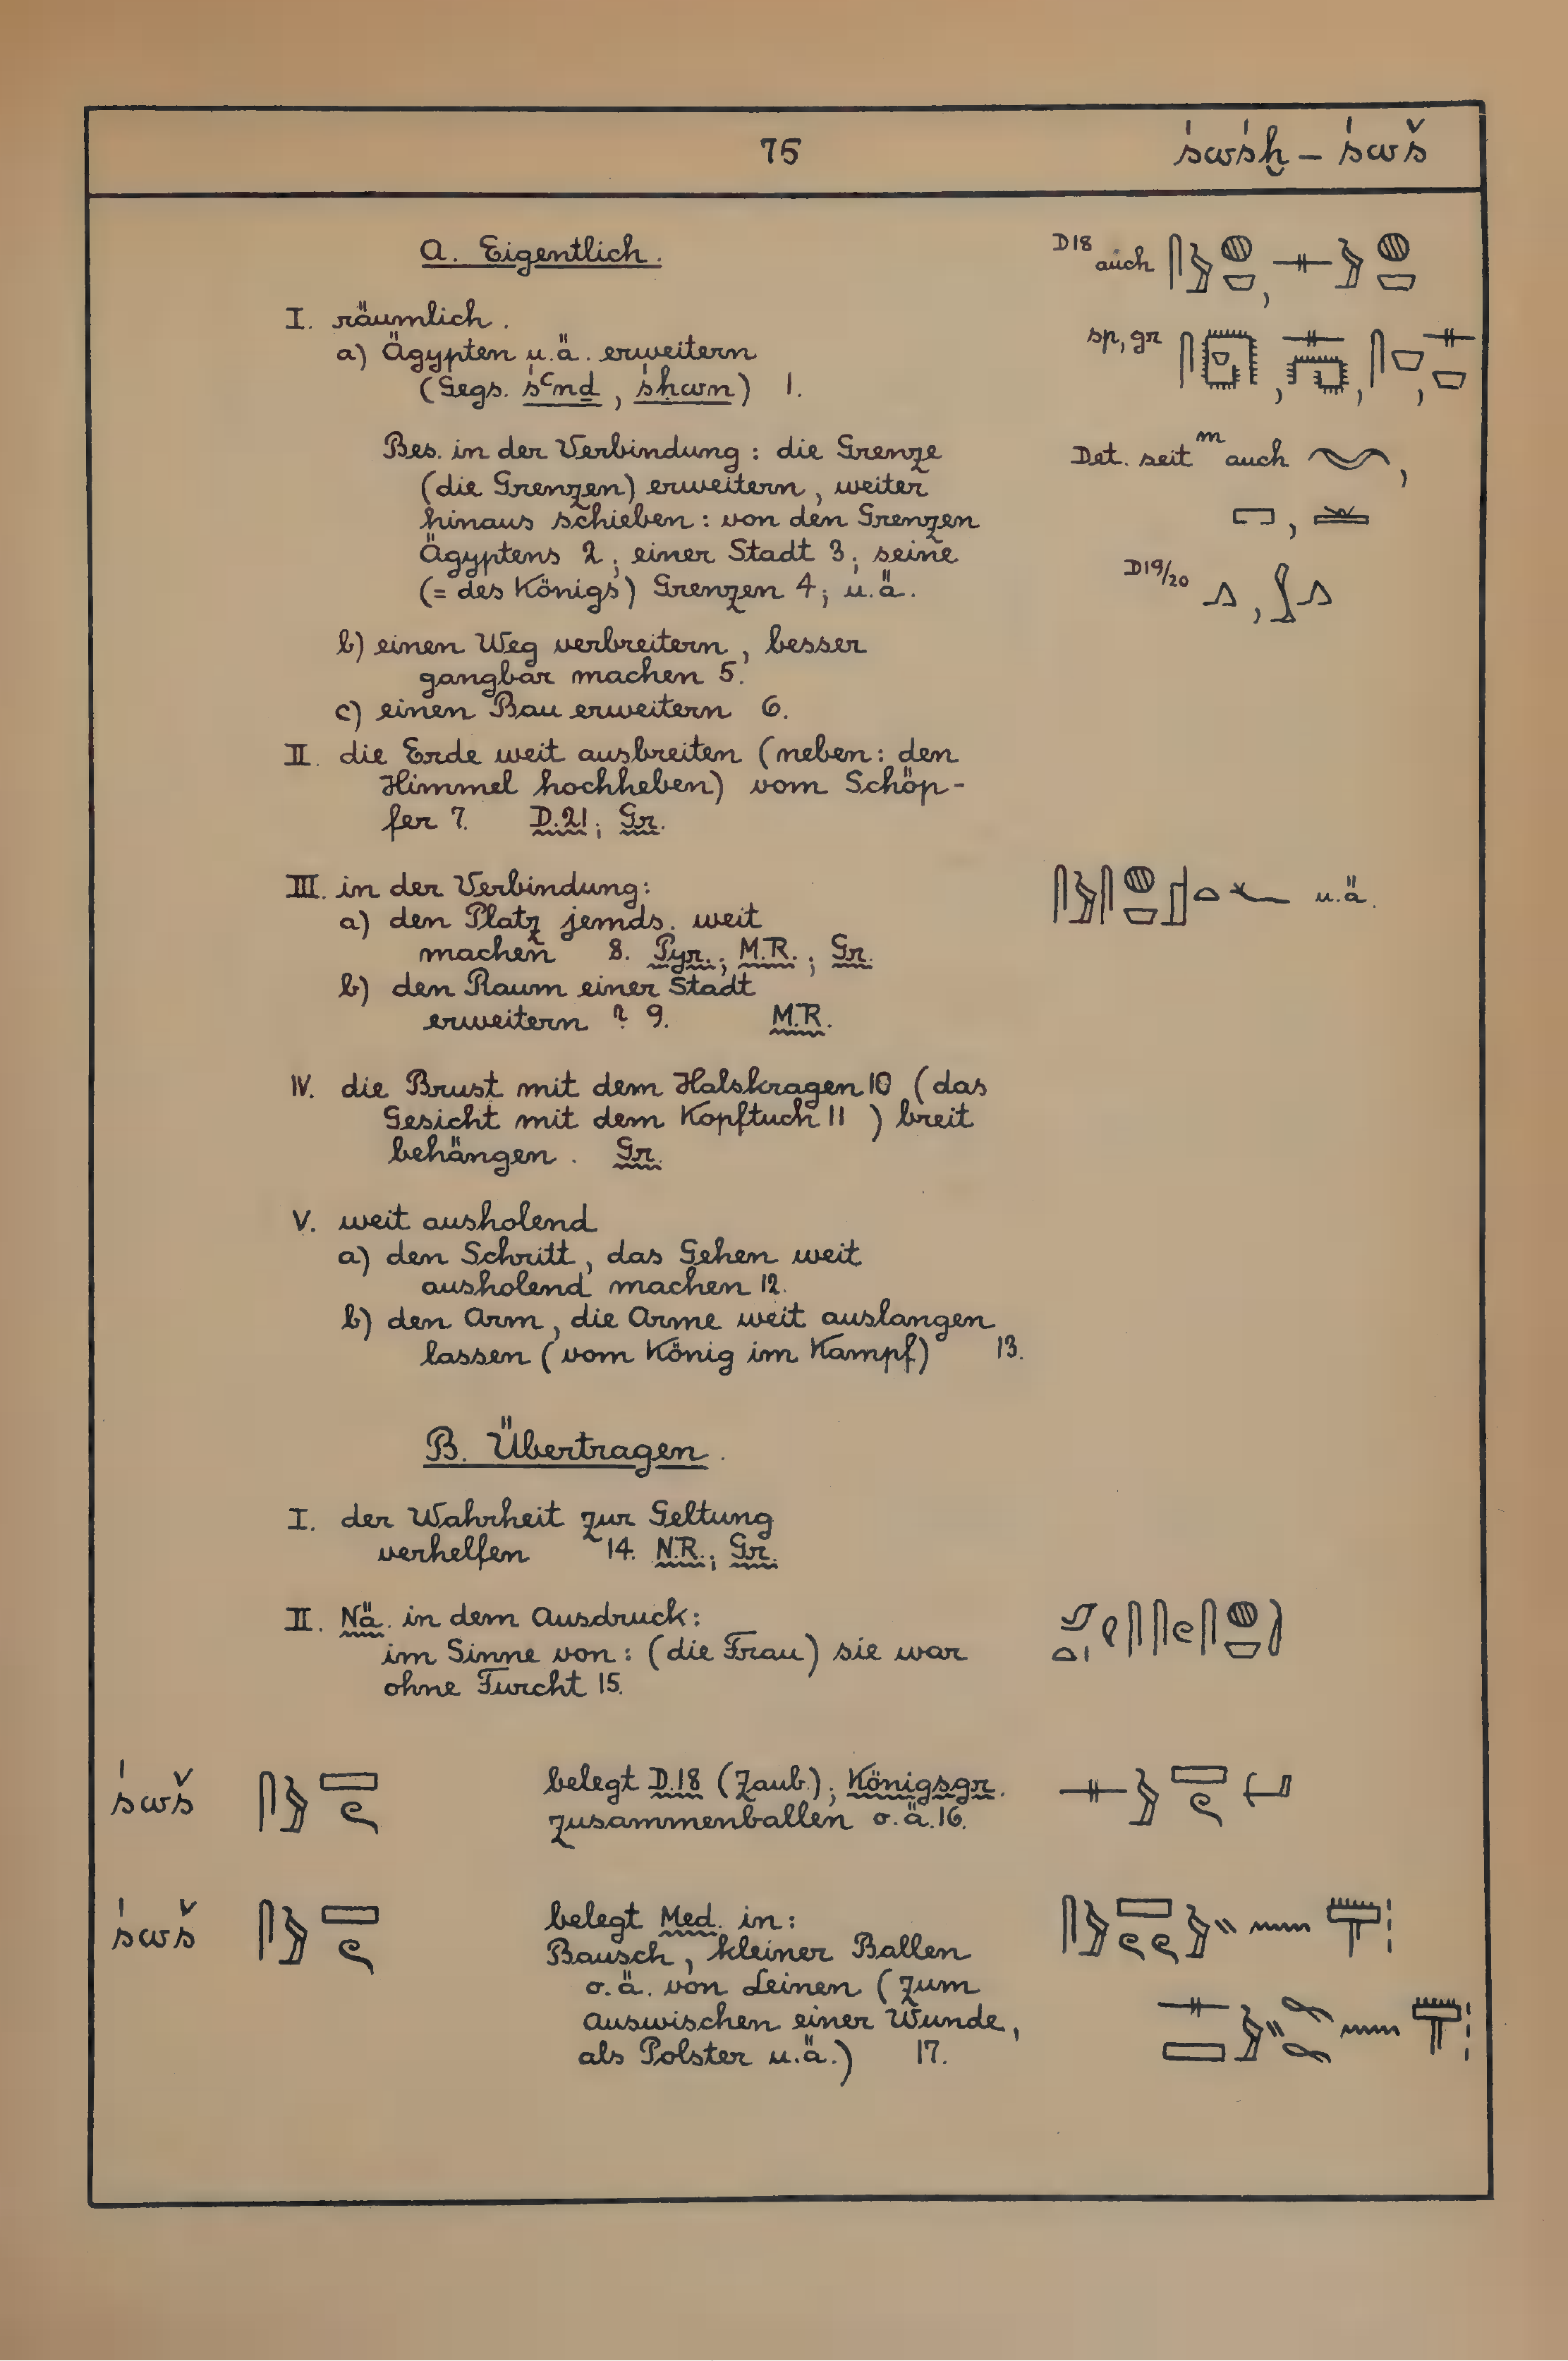 75
śwsḫ – śwš
A. Eigentlich.
D18 auch
I. räumlich.
a) Ägypten u.ä. erweitern
sp, gr
(Gegs. śꜥnḏ, śḥwn) 1.
Bes. in der Verbindung: die Grenze
Det. seit m auch
(die Grenzen) erweitern, weiter
hinaus schieben: von den Grenzen
Ägyptens 2; einer Stadt 3; seine
D19/20
(= des Königs) Grenzen 4; u.ä.
b) einen Weg verbreitern, besser
gangbar machen 5.
c) einen Bau erweitern 6.
II. die Erde weit ausbreiten (neben: den
Himmel hochheben) vom Schöp-
fer 7. D.21; Gr.
III. in der Verbindung:
u.ä.
a) den Platz jemds. weit
machen 8. Pyr.; M.R.; Gr.
b) den Raum einer Stadt
erweitern ? 9. M.R.
IV. die Brust mit dem Halskragen 10 (das
Gesicht mit dem Kopftuch 11 ) breit
behängen. Gr.
V. weit ausholend
a) den Schritt, das Gehen weit
ausholend machen 12.
b) den Arm, die Arme weit auslangen
lassen (vom König im Kampf) 13.
B. Übertragen.
I. der Wahrheit zur Geltung
verhelfen 14. N.R.; Gr.
II. Nä. in dem Ausdruck:
im Sinne von: (die Frau) sie war
ohne Furcht 15.
śwš
belegt D.18 (Zaub.); Königsgr.
zusammenballen o.ä. 16.
śwš
belegt Med. in:
Bausch, kleiner Ballen
o.ä. von Leinen (zum
Auswischen einer Wunde,
als Polster u.ä.) 17.